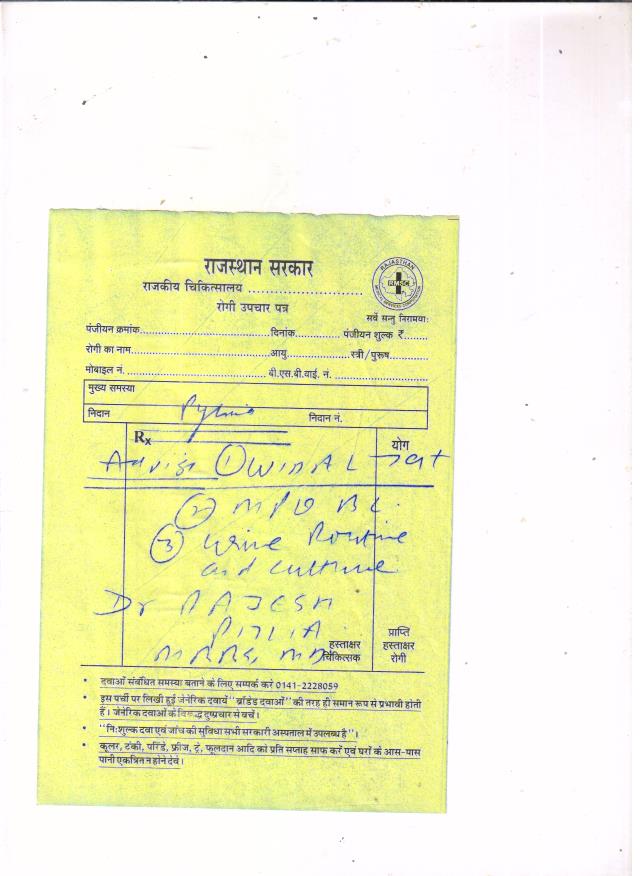 राजस्थान सरकार
राजकीय चिकित्सालय ........................
रोगी उपचार पत्र
RAJASTHAN
RMSC
MEDICAL SERVICES CORPORATION
सर्वे सन्तु निरामयाः
पंजीयन क्रमांक.............................. दिनांक............. पंजीयन शुल्क ₹.......
रोगी का नाम................................ आयु................ स्त्री/पुरूष...........
मोबाइल नं. ................................ बी.एस.बी.वाई. नं. ..........................
मुख्य समस्या
निदान निदान नं.
Rx योग
Advise ① WIDAL
② MPQ BC
③ Urine Routine
and culture
Dr RAJESH
MBBS, MD
हस्ताक्षर चिकित्सक
प्राप्ति हस्ताक्षर रोगी
• दवाओं संबंधित समस्या बताने के लिए सम्पर्क करें 0141-2228059
• इस पर्ची पर लिखी हुई जेनेरिक दवायें "ब्रांडेड दवाओं" की तरह ही समान रूप से प्रभावी होती
हैं। जेनेरिक दवाओं के विरूद्ध दुष्प्रचार से बचें।
• "निःशुल्क दवा एवं जाँच की सुविधा सभी सरकारी अस्पताल में उपलब्ध है"।
• कूलर, टंकी, परिंडे, फ्रीज, ट्रे, फूलदान आदि को प्रति सप्ताह साफ करें एवं घरों के आस-पास
पानी एकत्रित न होने देवें।